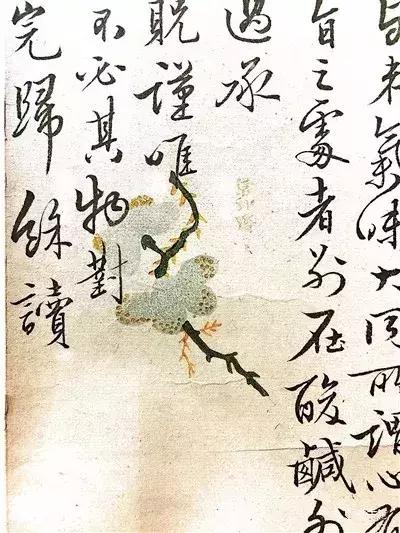 氣味大同所謂心
旨之處者別在酸鹹外
過承
貺謹唯
不必其物對
完歸餘讀